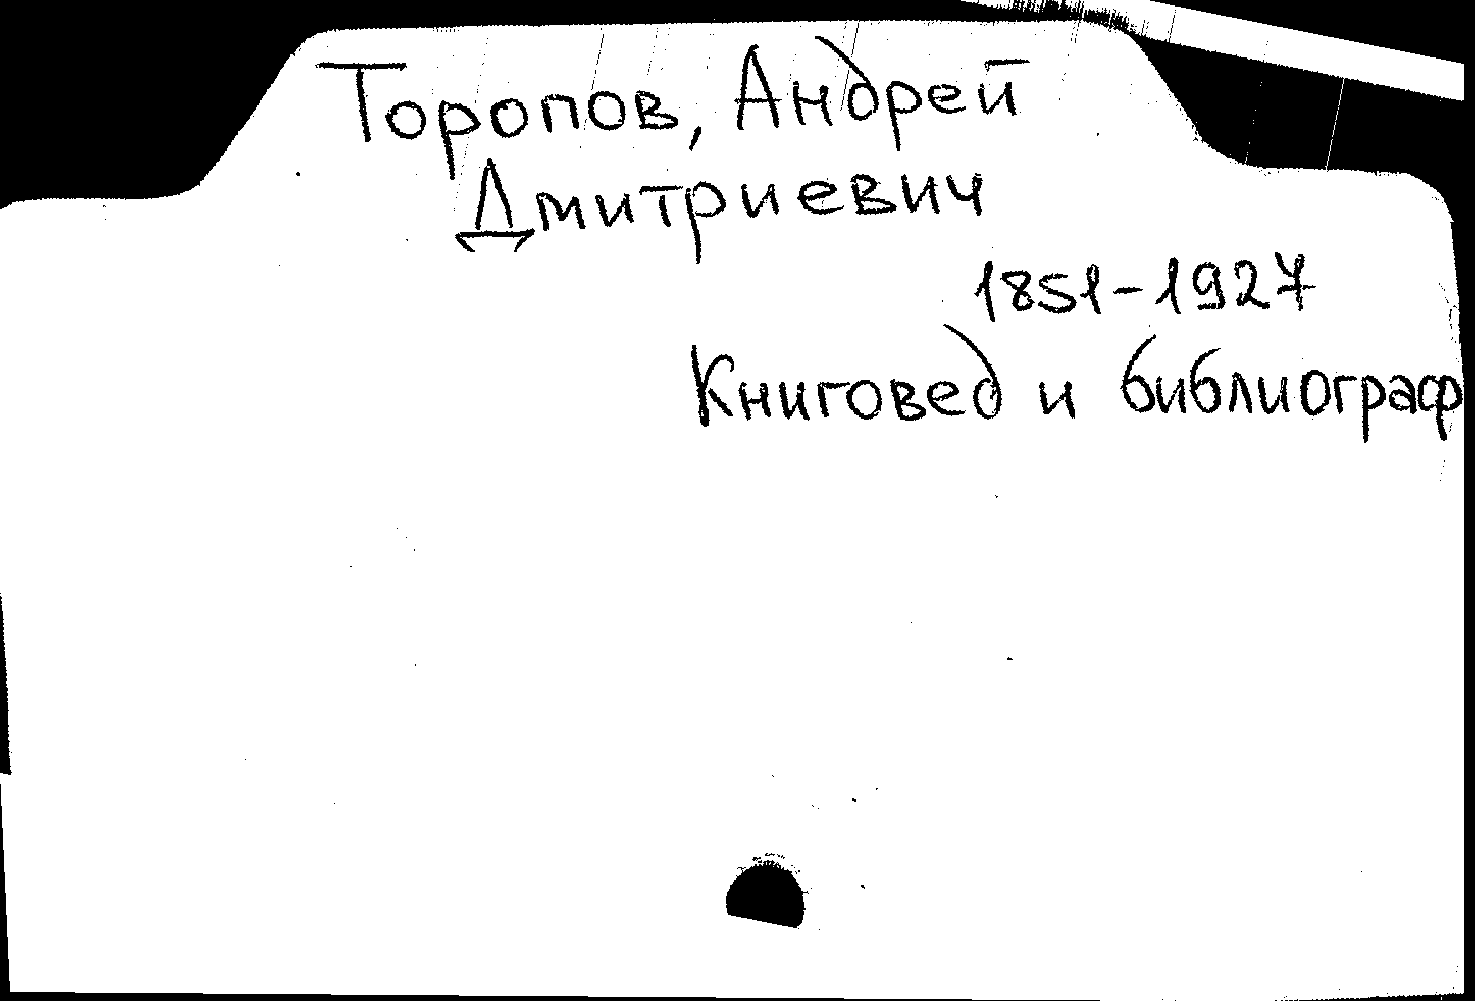 Торопов, Андрей
Дмитриевич
1851-1927
Книговед и библиограф